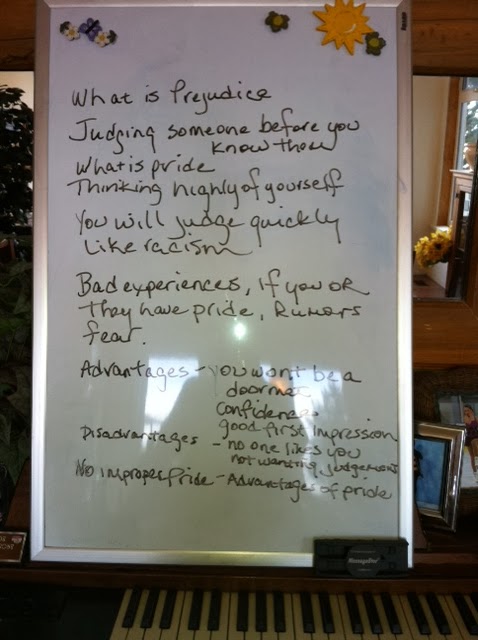 What is Prejudice
Judging someone before you
know them
What is pride
Thinking highly of yourself
You will judge quickly
Like racism
Bad experiences, if you or
they have pride, Rumors
fear.
Advantages - you wont be a
doormat
confidence
good first impression
Disadvantages - no one likes you
not wanting judgement
No improper Pride - Advantages of pride